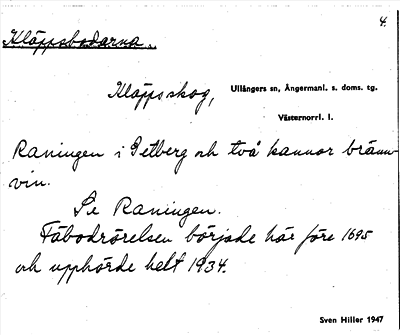 4.
Kläppsbodarna.
Kläppskog, Ullångers sn, Ångermanl. s. doms. tg.
Västernorrl. l.
Raningen i Getberg och två kannor bränn-
vin.
Se Raningen.
Fäbodrörelsen började här före 1695
och upphörde helt 1934.
Sven Hiller 1947